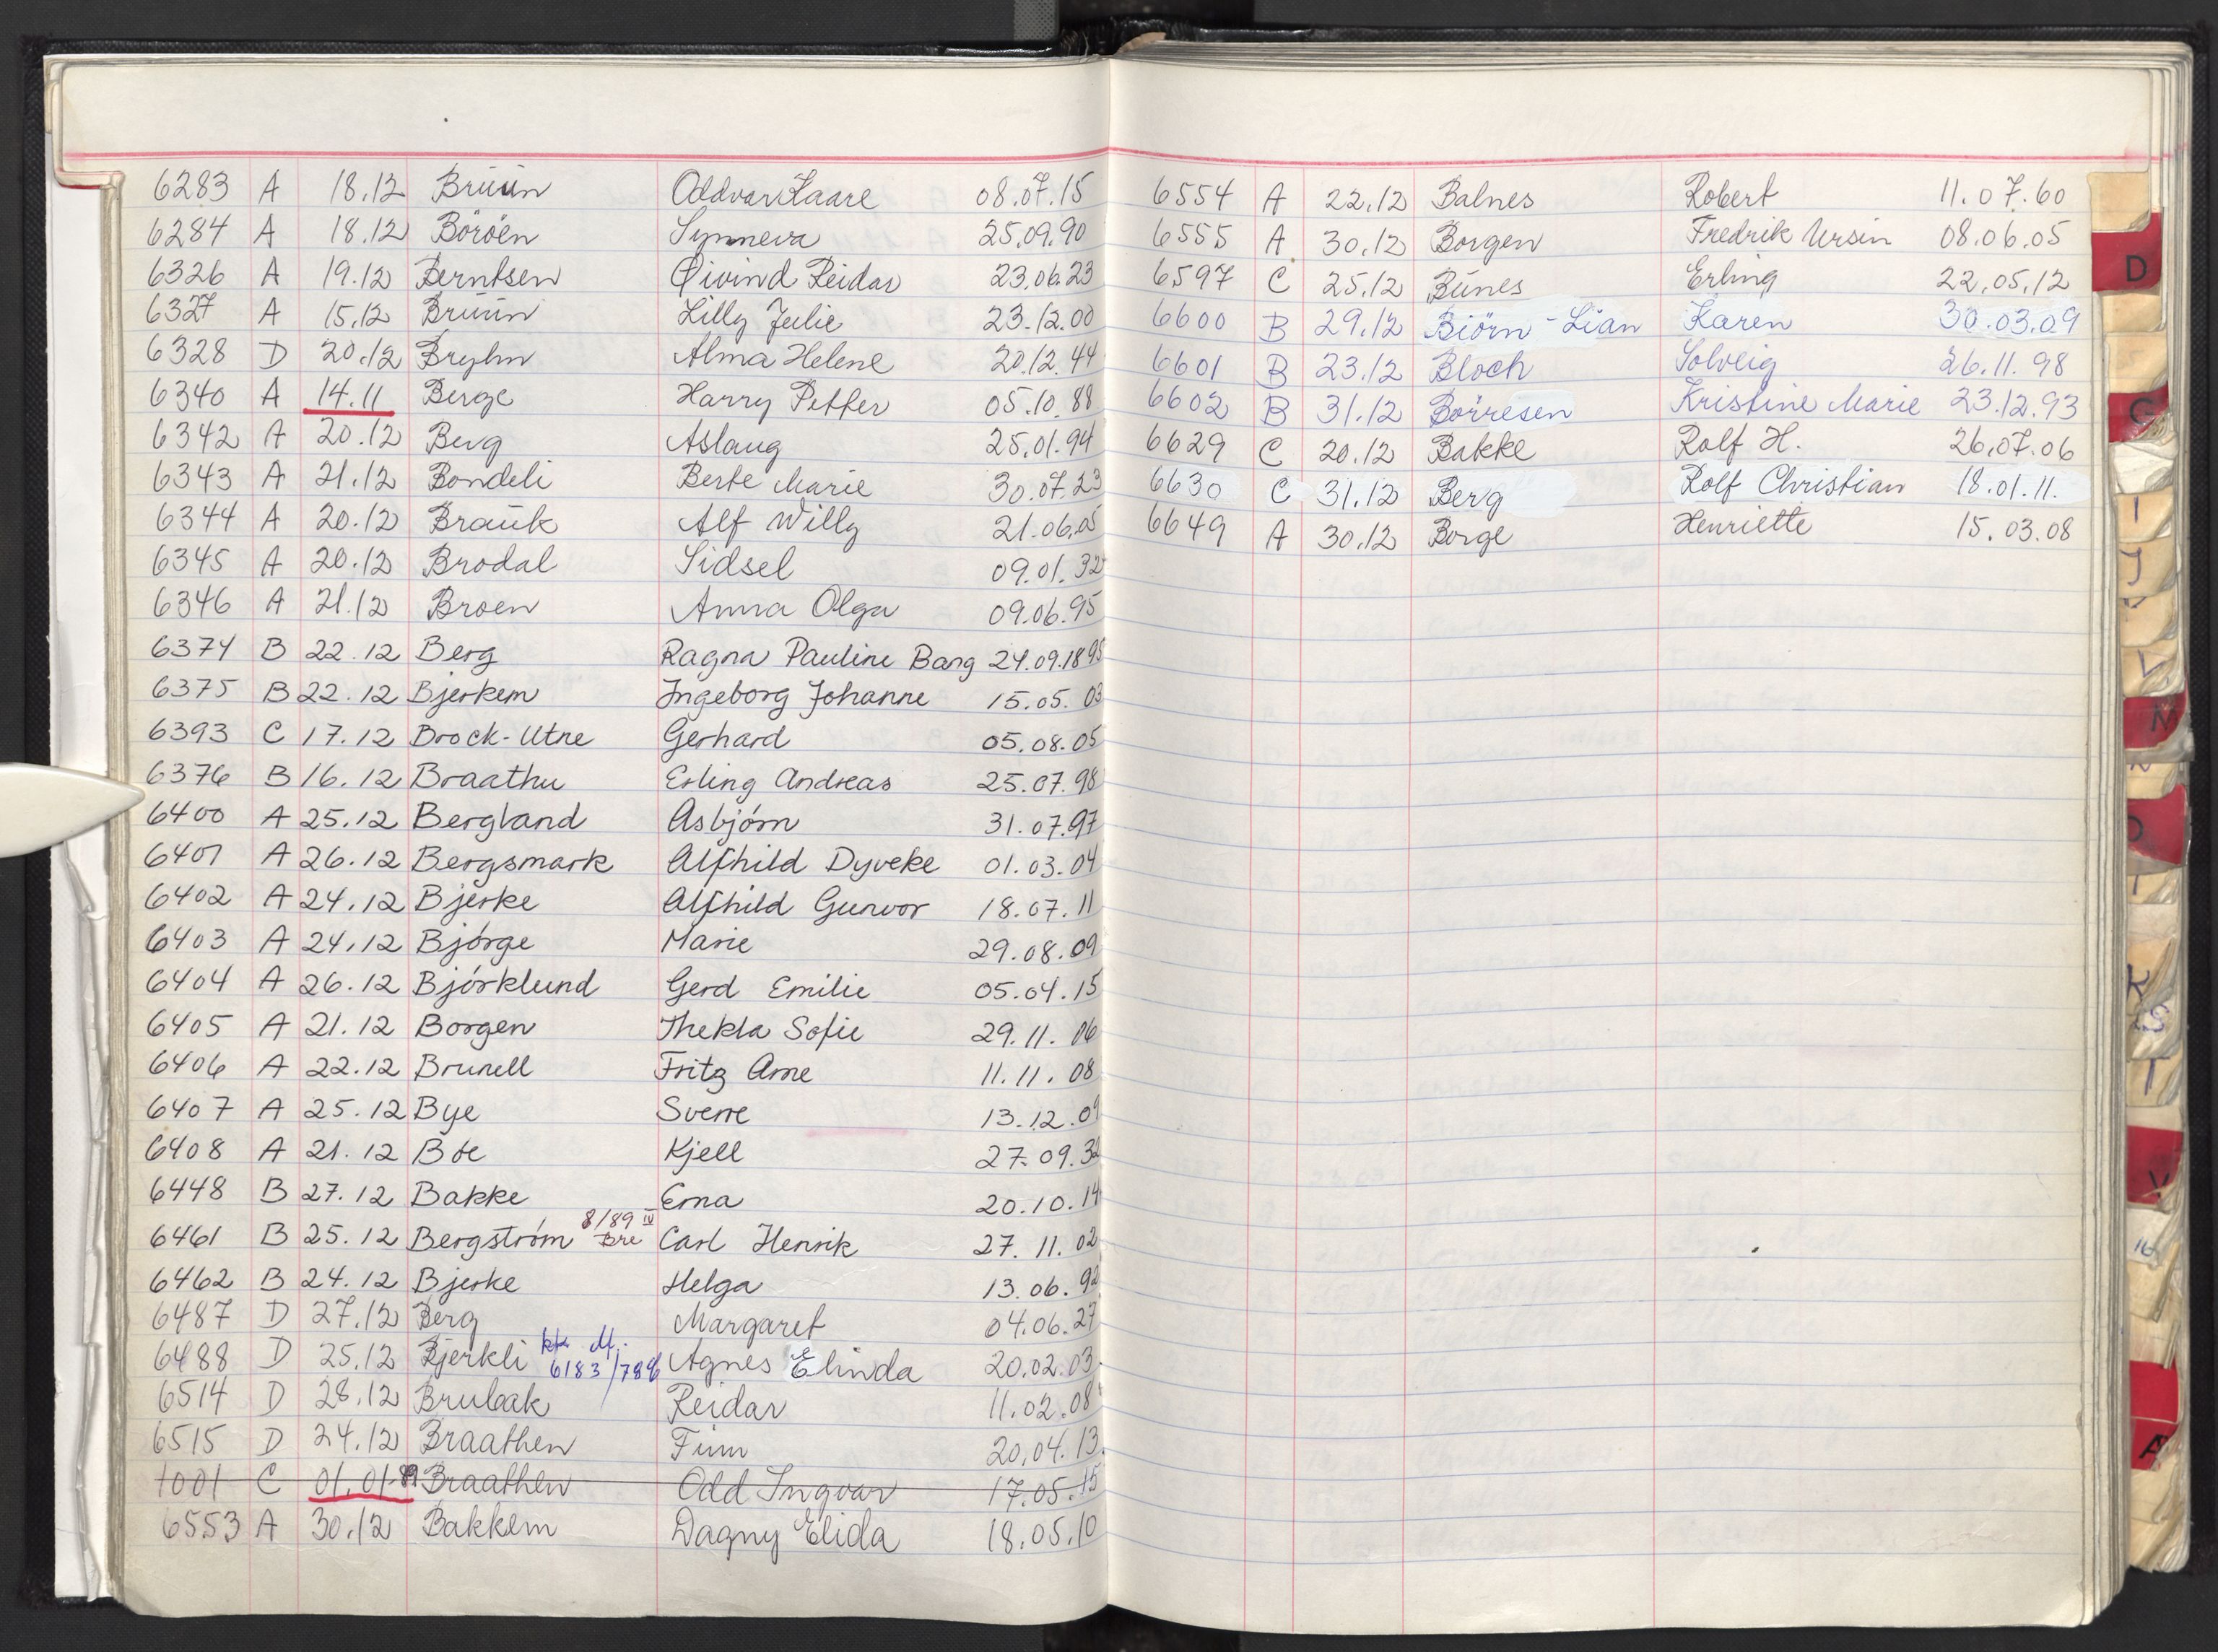 6283 A 18.12 Bruun Oddvar Kaare 08.07.15
6284 A 18.12 Böröen Synneva 25.09.90
6326 A 19.12 Berntsen Øivind Reidar 23.06.23
6327 A 15.12 Bruun Lilly Julie 23.12.00
6328 D 20.12 Bryhn Alma Helene 20.12.44
6340 A 14.11 Berge Harry Petter 05.10.88
6342 A 20.12 Berg Aslaug 25.01.94
6343 A 21.12 Bondeli Berte Marie 30.07.23
6344 A 20.12 Brauk Alf Willy 21.06.05
6345 A 20.12 Brodal Sidsel 09.01.32
6346 A 21.12 Broen Anna Olga 09.06.95
6374 B 22.12 Berg Ragna Pauline Bang 24.09.1895
6375 B 22.12 Bjerkem Ingeborg Johanne 15.05.03
6393 C 17.12 Brock-Utne Gerhard 05.08.05
6376 B 16.12 Braathu Erling Andreas 25.07.98
6400 A 25.12 Bergland Asbjørn 31.07.97
6401 A 26.12 Bergsmark Alfhild Dyveke 01.03.04
6402 A 24.12 Bjerke Alfhild Gunvor 18.07.11
6403 A 24.12 Bjørge Marie 29.08.09
6404 A 26.12 Bjørklund Gerd Emilie 05.04.15
6405 A 21.12 Borgen Thekla Sofie 29.11.06
6406 A 22.12 Brunell Fritz Arne 11.11.08
6407 A 25.12 Bye Sverre 13.12.09
6408 A 21.12 Bøe Kjell 27.09.32
6448 B 27.12 Bakke Erna 20.10.14
8/89 IV
6461 B 25.12 Bergstrøm Bre Carl Henrik 27.11.02
6462 B 24.12 Bjerke Helga 13.06.92
6487 D 27.12 Berg Margaret 04.06.27
6488 D 25.12 Bjerkli 6183/788 Agnes Elinda 20.02.03
6514 D 28.12 Brubak Reidar 11.02.08
6515 D 24.12 Braathen Finn 20.04.13
1001 C 01.01-89 Braathen Odd Ingvar 17.05.15
6553 A 30.12 Bakkem Dagny Elida 18.05.10
6554 A 22.12 Balnes Robert 11.07.60
6555 A 30.12 Borgen Fredrik Ursin 08.06.05
6597 C 25.12 Bunes Erling 22.05.12
6600 B 29.12 Biörn-Lian Karen 30.03.09
6601 B 23.12 Bloch Solveig 26.11.98
6602 B 31.12 Börresen Kristine Marie 23.12.93
6629 C 20.12 Bakke Rolf H. 26.07.06
6630 C 31.12 Berg Rolf Christian 18.01.11.
6649 A 30.12 Borge Henriette 15.03.08
D
G
I
J
M
K
S
T
V